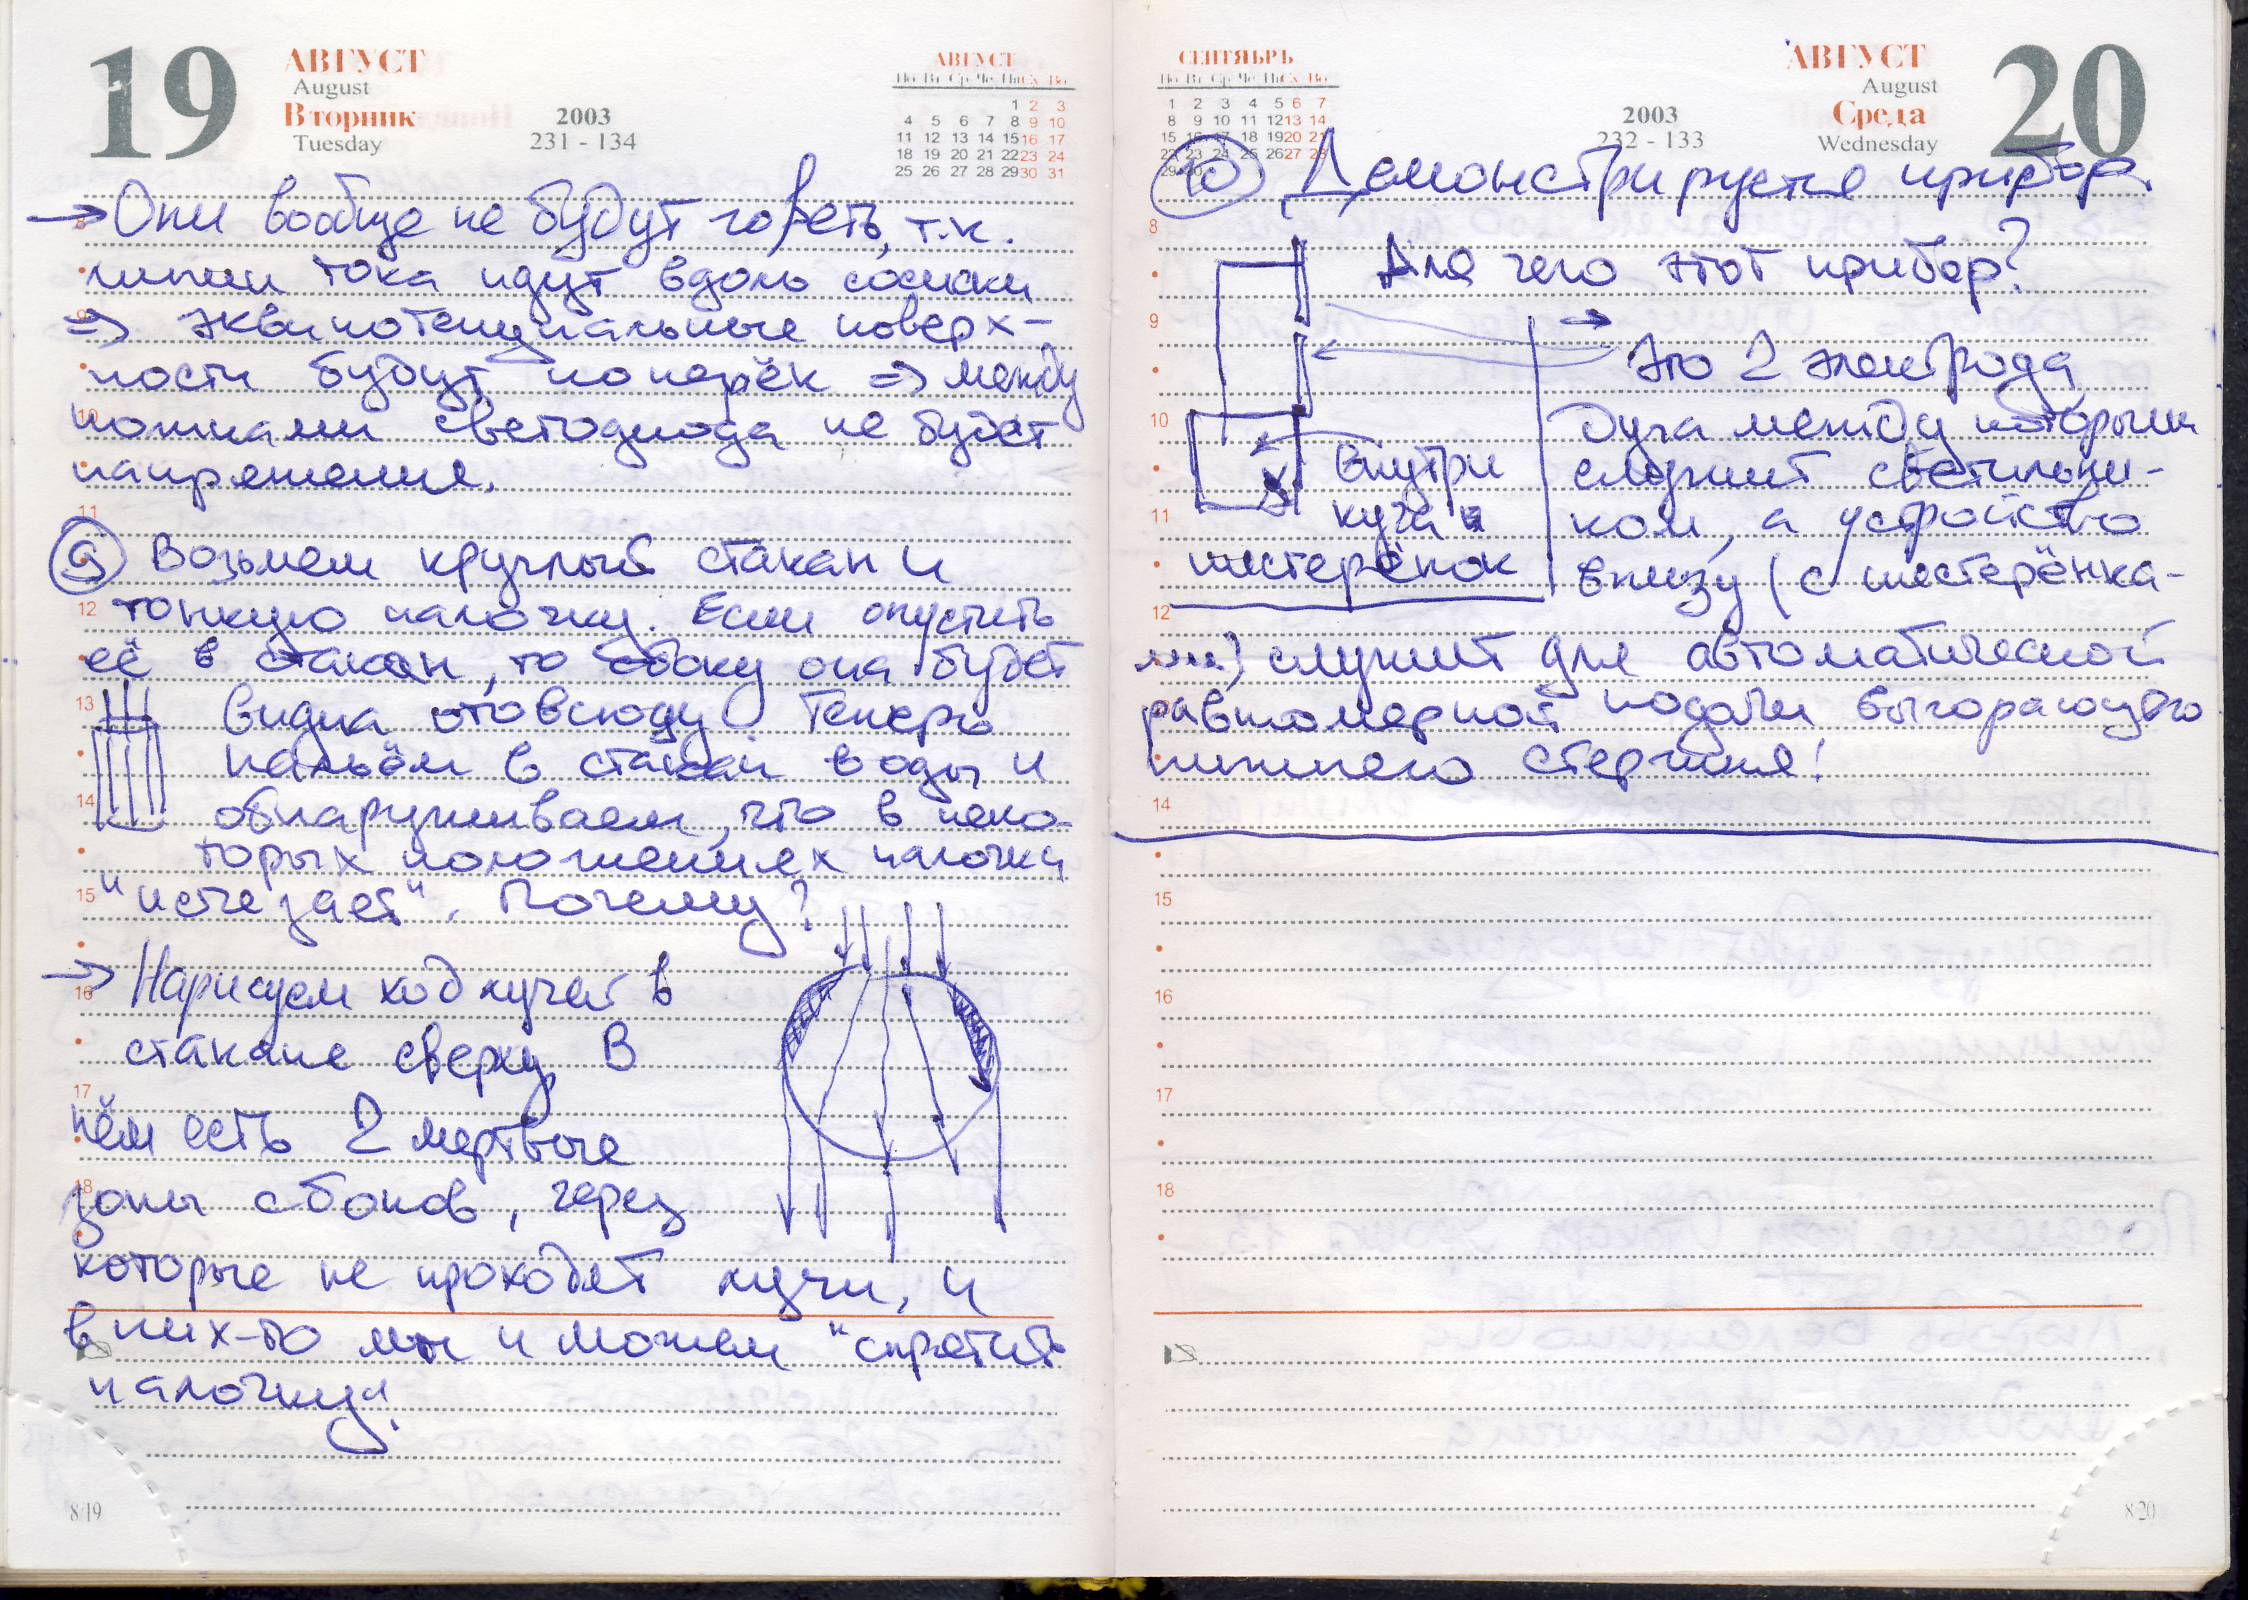 19
АВГУСТ
August
Вторник
Tuesday
2003
231 - 134
АВГУСТ
По Вт Ср Че Пн Сх Во
1 2 3
4 5 6 7 8 9 10
11 12 13 14 15 16 17
18 19 20 21 22 23 24
25 26 27 28 29 30 31
→ Они вообще не будут гореть, т.к.
линии тока идут вдоль сосиски
⇒ эквипотенциальные поверх-
ности будут поперёк ⇒ между
ножками светодиода не будет
напряжения.
9 Возьмем круглый стакан и
тонкую палочку. Если опустить
её в стакан, то сбоку она будет
видна отовсюду. Теперь
нальём в стакан воды и
обнаруживаем, что в неко-
торых положениях палочка
"исчезает". Почему?
→ Нарисуем ход лучей в
стакане сверху. В
нём есть 2 мертвые
зоны с боков, через
которые не проходят лучи, и
в них-то мы и можем "спрятать
палочку".
8/19
СЕНТЯБРЬ
По Вт Ср Че Пн Сх Во
1 2 3 4 5 6 7
8 9 10 11 12 13 14
15 16 17 18 19 20 21
22 23 24 25 26 27 28
29 30
2003
232 - 133
АВГУСТ
August
Среда
Wednesday
20
10 Демонстрируется прибор.
Для чего этот прибор?
→
Это 2 электрода
дуга между которыми
служит светильни-
ком, а устройство
внизу (с шестерёнка-
ми) служит для автоматической
равномерной подачи выгорающего
нижнего стержня!
внутри
куча
шестерёнок
8
9
10
11
12
13
14
15
16
17
18
8/20